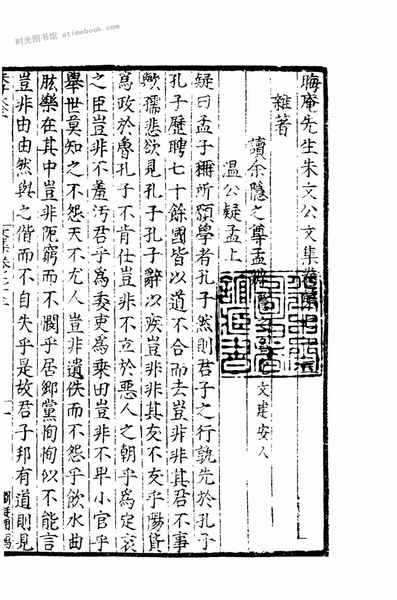 时光图书馆 atimebook.com
晦庵先生朱文公文集卷第
雜著
讀余隱之尊孟辨 文建安人
温公疑孟上
疑曰孟子稱所願學者孔子然則君子之行孰先於孔子
孔子歷聘七十餘國皆以道不合而去豈非非其君不事
歟孺悲欲見孔子孔子辭以疾豈非非其友不友乎陽貨
爲政於魯孔子不肯仕豈非不立於惡人之朝乎爲定哀
之臣豈非不羞汚君乎爲委吏爲乘田豈非不卑小官乎
舉世莫知之不怨天不尤人豈非遺佚而不怨乎飲水曲
肱樂在其中豈非阨窮而不閔乎居鄉黨恂恂似不能言
豈非由由然與之偕而不自失乎是故君子邦有道則見